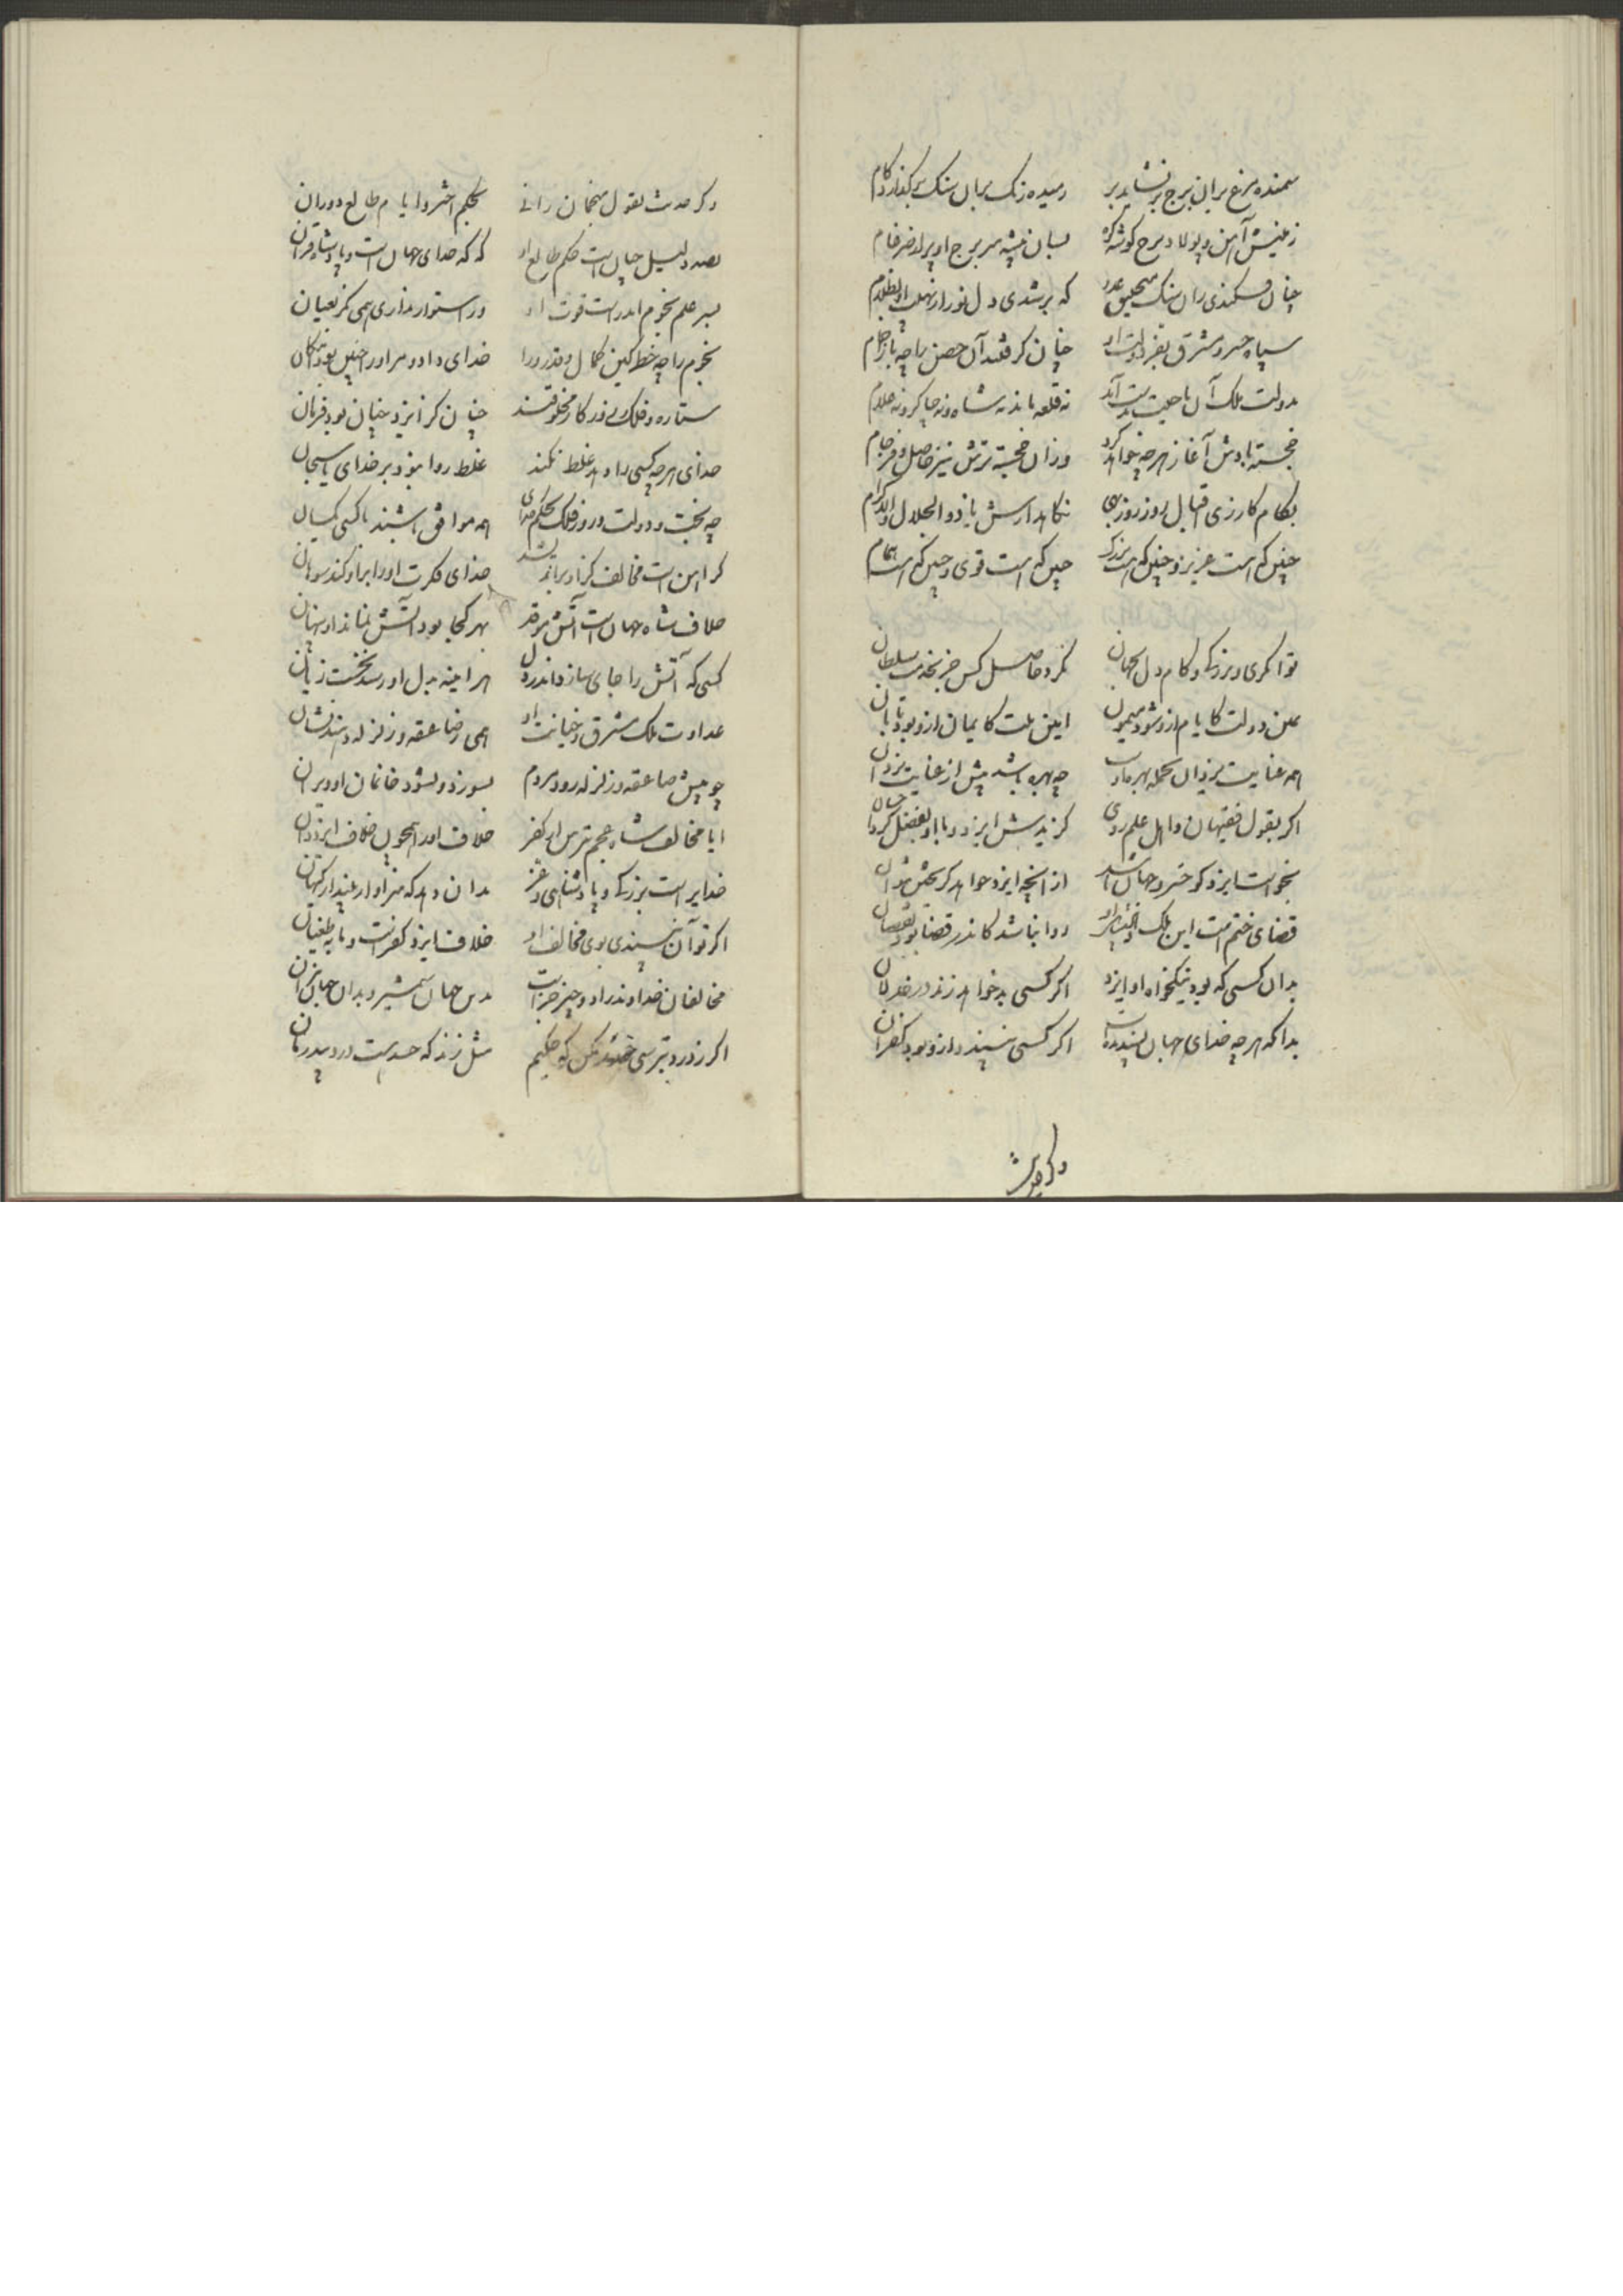 سمنده مرغ بران برج بر نشاید پر
رمیده رنک بران سنک بر کذارد کام
زمینش آهن و پولاد برج کوشه کره
بسان بیشه سر برج او پر از ضرغام
چنان فکندی زان سنک منجنیق عدو
که بر شدی دل نور از نهیب او بظلام
سپاه خسرو مشرق بفر دولت او
چنان کرفتند آن حصن را چه باز حمام
بدولت ملک آن ناحیت بدست آمد
نه قلعه ماند نه شاه و نه چاکر و نه غلام
خجسته بادش آغاز هر چه خواهد کرد
وزان خجسته ترش نیز حاصل و فرجام
بکام کار زی اقبال روز روز بهی
نکاهدارش باد ذو الجلال والاکرام
چنین که است عزیز و چنین که است بزرک
چنین که است قوی و چنین که است همام
توانکری و بزرکی و کام دل بجهان
نکرد حاصل کس جز بخدمت سلطان
یمین دولت کایام ازو شود میمون
امین ملت کایمان ازو بود تابان
همه عنایت یزدان بجمله بهره اوست
چه بهره باشد بیش از عنایت یزدان
اکر بقول فقیهان و اهل علم روی
کزیدش ایزد و با او بفضل کرد احسان
بخواست ایزد کو خسرو جهان باشد
از آنچه ایزد خواهد کریختن نتوان
قضای ختم است این ملک و پادشاهی او
روا نباشد کاندر قضا بود نقصان
بدان کسی که بود نیکخواه او ایزد
اکر کسی بد خواهد زند در خذلان
بدانکه هر چه خدای جهان پسندیده است
اکر کسی نپسندد ازو بود کفران
وکر حدیث
وکر حدیث بقول منجمان رانی
بحکم اختر و ایام طالع و دوران
بصد دلیل چنان است حکم طالع او
که که خدای جهان است و پادشاه قران
بسر علم نجوم اندر است قوت او
ور استوار نداری همی نکر بعیان
نجوم را چه خطر کین کمال و قدر ورا
خدای داد و سزاوار چنین بود امکان
ستاره و فلک و روزکار مخلوقند
چنان کرانند چنان بود فرمان
خدای هر چه کسی را دهد غلط نکند
غلط روا نبود بر خدای یا سبحان
چه بخت و دولت و روز فلک بحکم خدای
همه موافق باشند با کسی یکسان
کر آهن است مخالف کز او براندیشد
خدای فکرت او را بر او کند سوهان
خلاف شاه جهان است آتش موقد
بهر کجا بود آتش نماند او پنهان
کسی که آتش را جای سازد اندر دل
هر آینه بدل او رسد نخست زیان
عداوت ملک مشرق و خیانت او
همی ز صاعقه و زلزله دهند نشان
چو پیش صاعقه و زلزله رود مردم
بسوزد و بشود خانمان او ویران
ایا مخالف شاه عجم بترس از کفر
خلاف او را همچون خلاف ایزد دان
خدایراست بزرکی و پادشاهی و عز
بدان دهد که سزاوار بیند از کیهان
اکر تو آن نپسندی بوی مخالف او
خلاف ایزد کفر است و مایه طغیان
مخالفان خداوند را دو چیز جزاست
بدین جهان شمشیر و بدان جهان نیران
اکر ز درد بترسی حسد مکن که حکیم
مثل زند که حسد هست درد بیدرمان